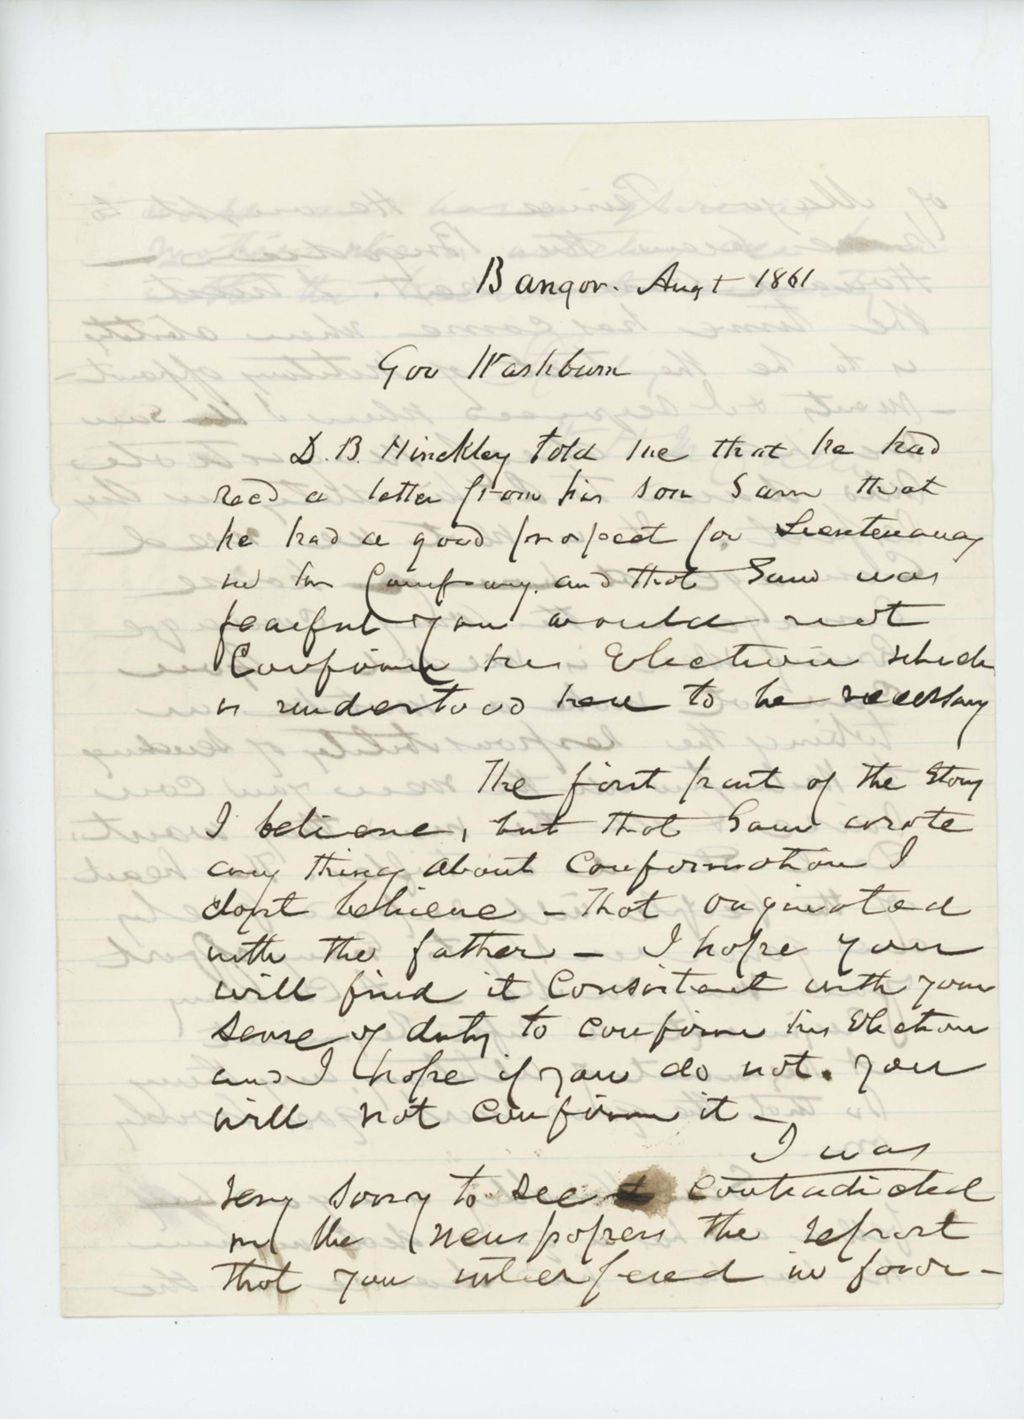 Bangor. Augt 1861
Gov Washburn
D. B. Hinckley told me that he had
recd a letter from his son Sam that
he had a good prospect for Lieutenancy
in his Company. and that Sam was
fearful you would not
Confirm his Election which
is understood here to be necessary
The first part of the Story
I believe, but that Sam wrote
any thing about Confirmation I
dont believe - That originated
with the father - I hope you
will find it Consistent with your
sense of duty to confirm his Election
and I hope if you do not. you
will not confirm it -
I was
very sorry to see contradicted
in the newspapers the report
that you interfered in favor -